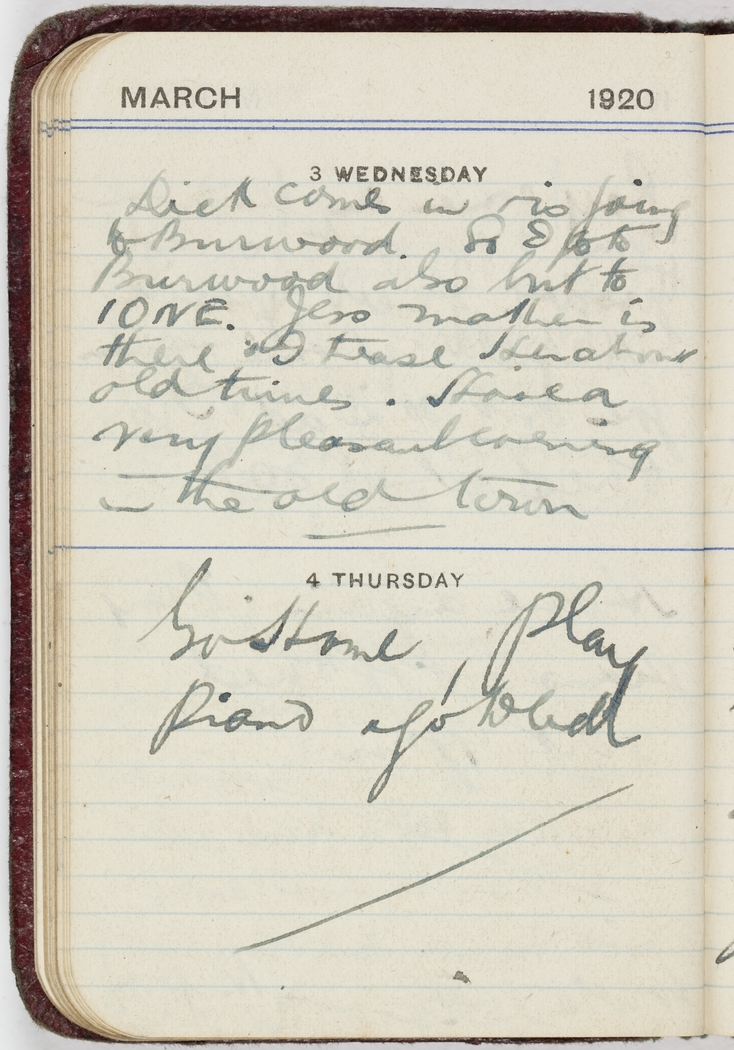 MARCH 1920
3 WEDNESDAY
Dick comes in & is going
to Burwood. So I go to
Burwood also but to
IONE. Jess mother is
there & I tease her about
old times. Have a
very pleasant evening
in the old town
4 THURSDAY
Go Home, play
piano & go to bed